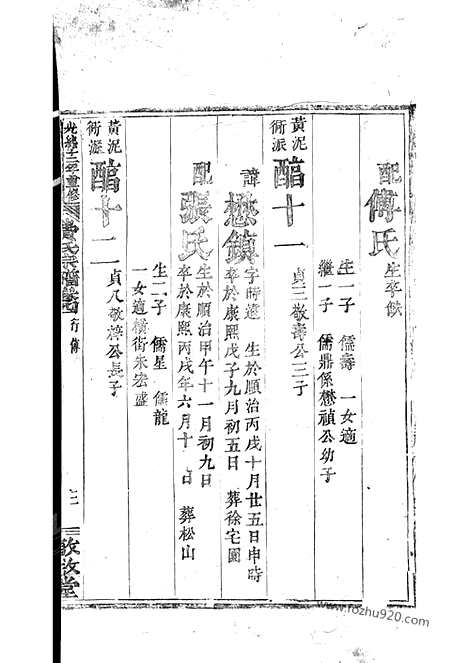 配傅氏生卒缺
生一子 儒壽 一女適
繼一子 儒鼎係懋禎公幼子
黃泥衕派 酷十一 貞三敬壽公三子
諱懋鎮字時遠 生於順治丙戌十月廿五日申時
卒於康熙戊子九月初五日 葬徐宅園
配張氏生於順治甲午十一月初九日
卒於康熙丙戌年六月十 日 葬松山
生二子 儒星 儒龍
一女適橫街朱宏盛
黃泥衕派 酷十二 貞八敬梓公長子
光緒十二年重修 氏宗譜卷 行傳 三 敦敘堂
www.rozhu920.com